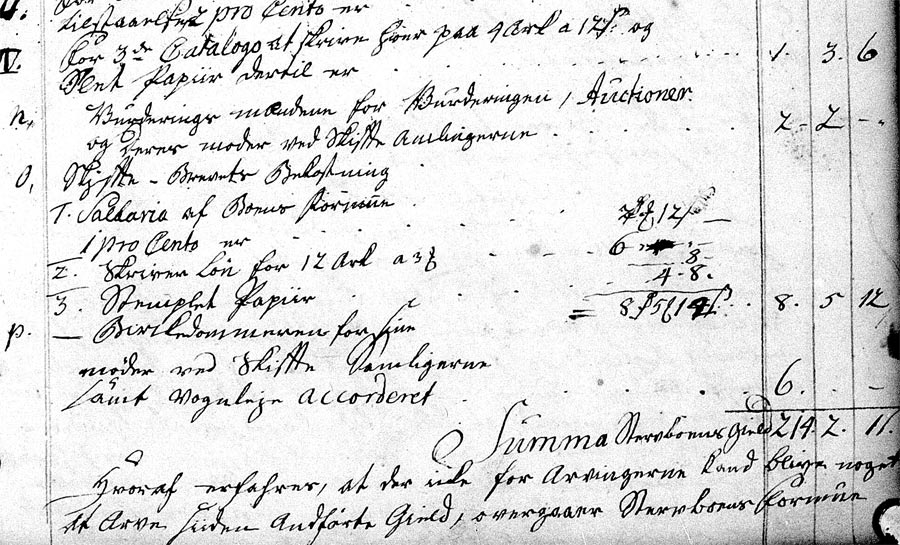 tilstaaeltes 2 pro Cento er
IV. For 3de Catalogo at skrive hver paa 4 Ark a 12ß og
Slet Papiir dertil er 1. 3. 6
n, Vurderings mændene for Vurderingen, Auctionen
og deres møder ved Skifte Samlingerne 2 - 2 -
o, Skifte-Brevets Bekostning
1. Sallaria af Boens Formue 2 12ß
1 pro Cento er 6
2. Skriver Løn for 12 Ark a 3 - 8 -
3. Stemplet Papiir 4 - 8.
= 8 5 8. 5 12
p. — Birkedommeren for sine
møder ved Skifte Samligerne
samt Vognleje accorderet 6. -
Summa Stervboens Gield 214. 2. 11.
Hvoraf erfahres, at der icke for Arvingerne kand blive noget
at Arve siden Andførte Gield, overgaaer Stervboens Formue